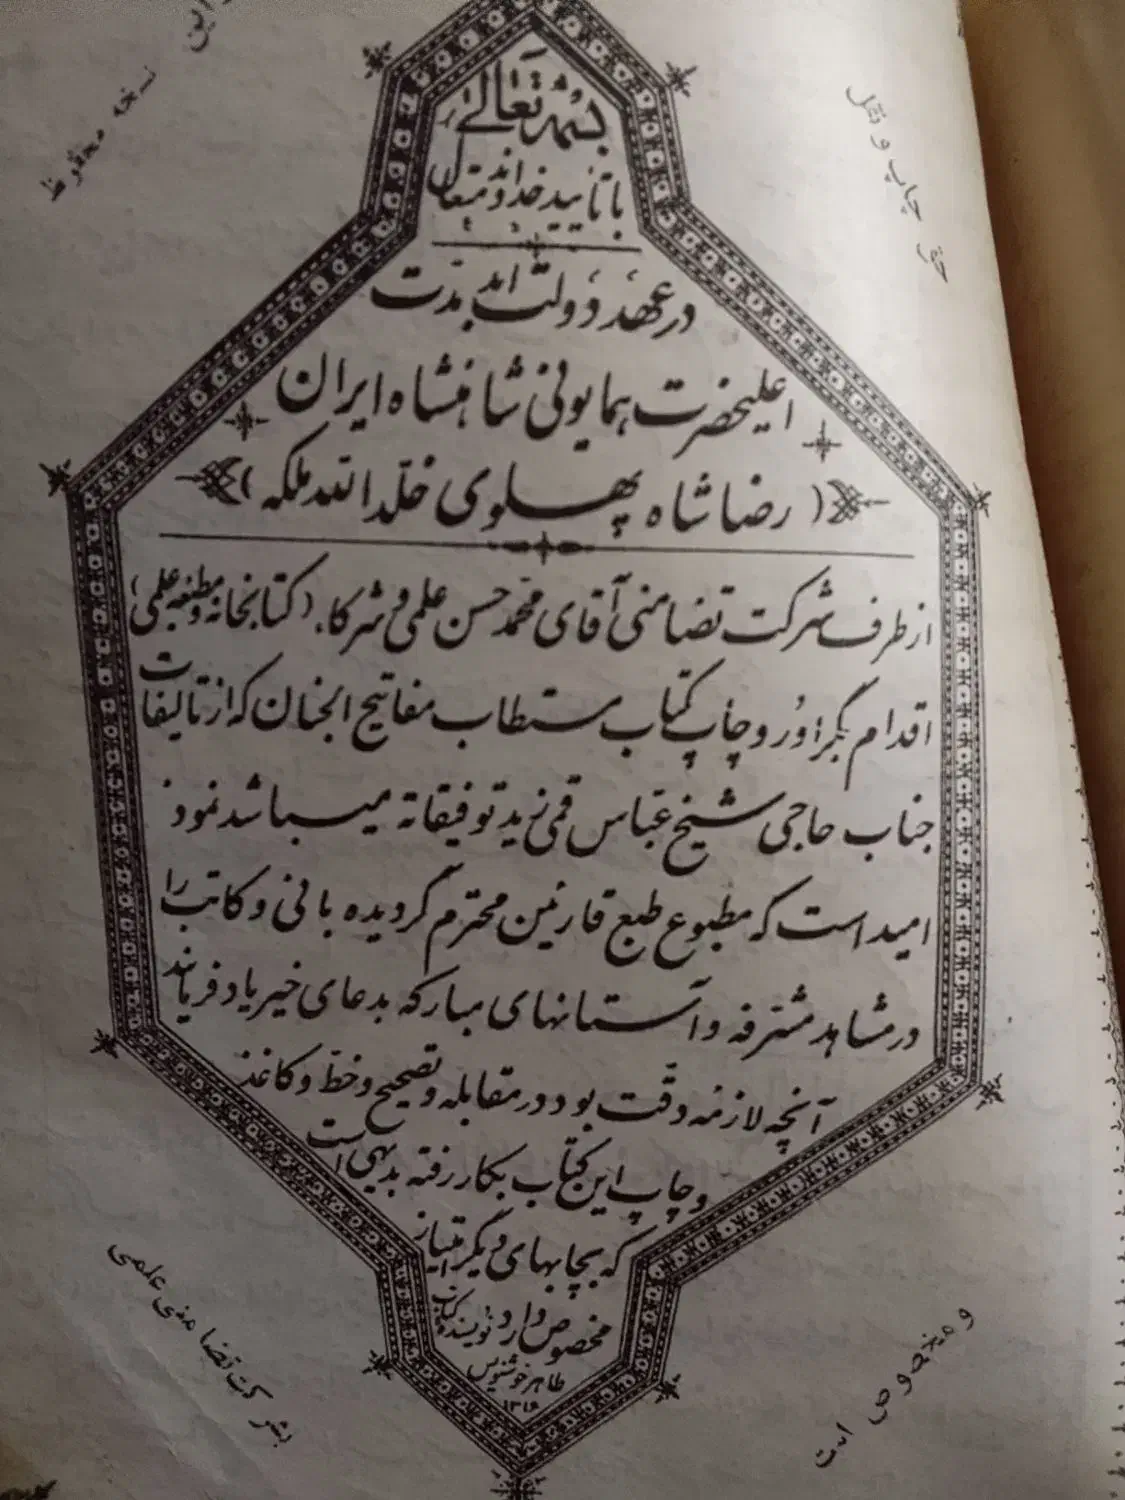 بسمه تعالی
با تأیید خداوند متعال
در عهد دولت ابد مدت
اعلیحضرت همایونی شاهنشاه ایران
(رضا شاه پهلوی خلّد الله ملکه)
از طرف شرکت تضامنی آقای محمد حسن علمی و شرکاء (کتابخانه و مطبعه علمی)
اقدام بگراور و چاپ کتاب مستطاب مفاتیح الجنان که از تالیفات
جناب حاجی شیخ عباس قمی زید توفیقاته میباشد نمود
امید است که مطبوع طبع قارئین محترم گردیده بانی و کاتب را
در مشاهد مشرفه و آستانهای مبارکه بدعای خیر یاد فرمایند
آنچه لازمه دقت بود در مقابله و تصحیح و خط و کاغذ
و چاپ این کتاب بکار رفته بدیهی است
که بچاپهای دیگر امتیاز
مخصوص دارد نویسنده کتاب
طاهر خوشنویس
۱۳۱۶
حق چاپ و نقل
و این
نسخه محفوظ
و مخصوص است
بشرکت تضامنی علمی